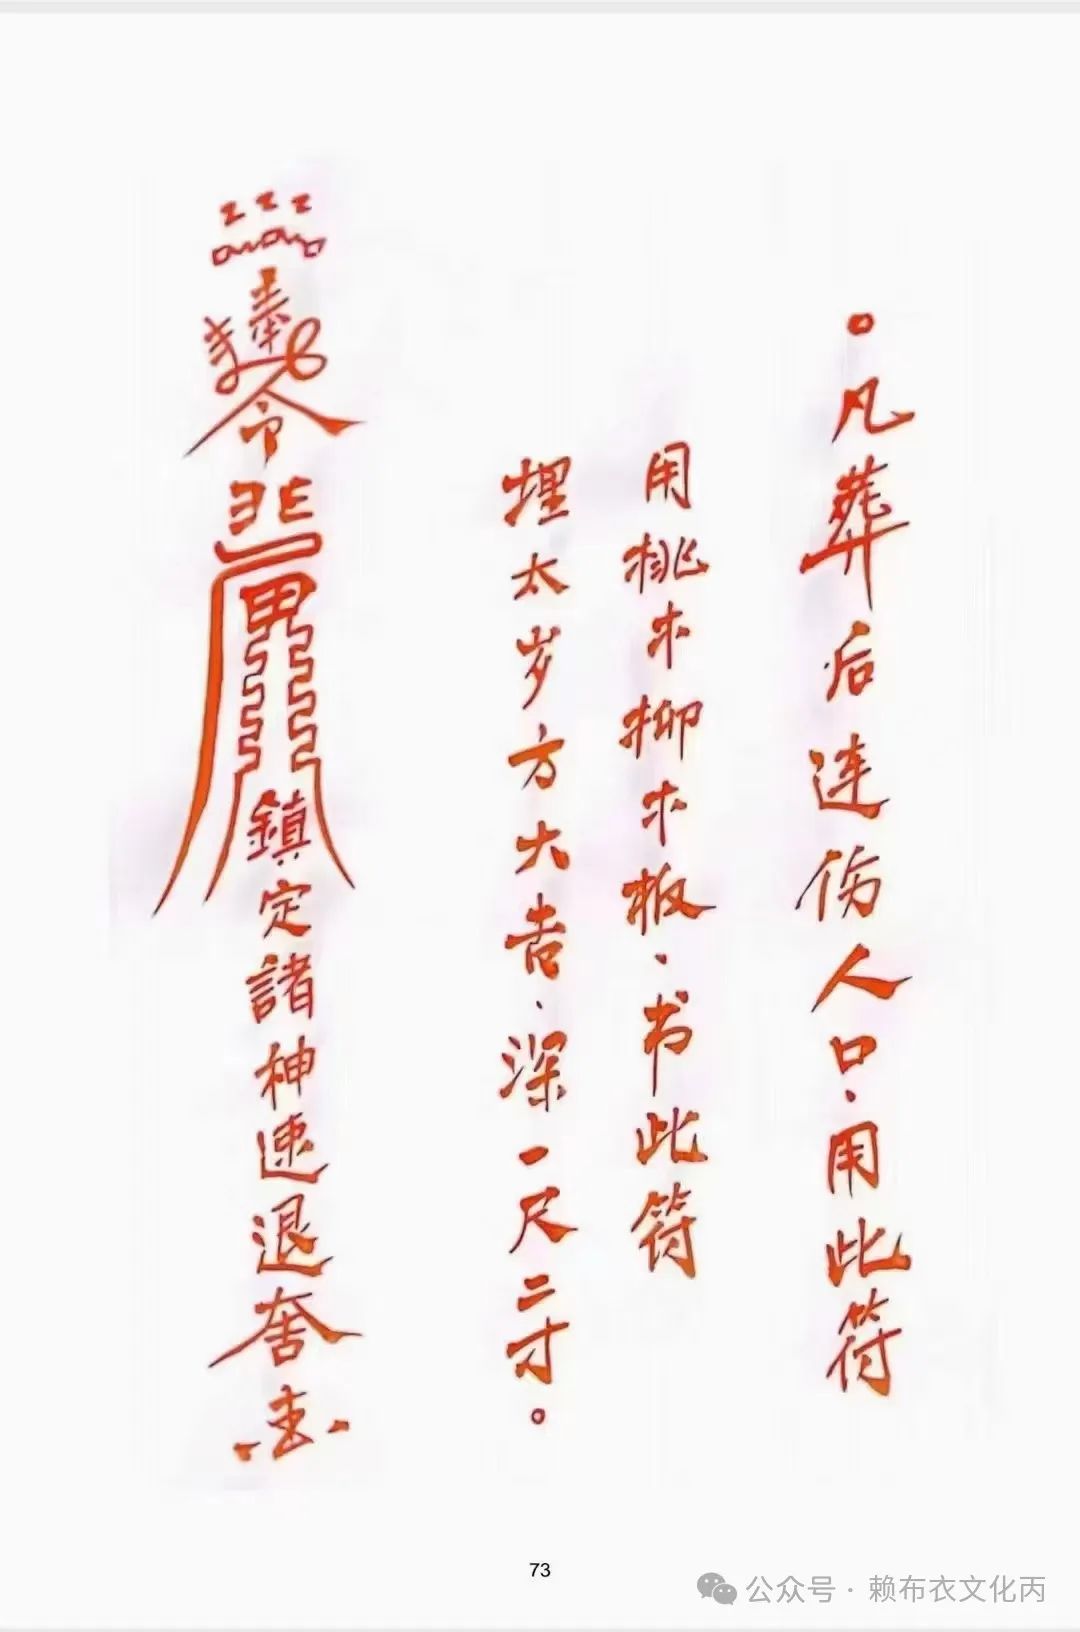 凡葬后连伤人口.用此符
用桃木柳木板.书此符
埋太岁方大吉.深一尺二寸。
奉
令
鎮定諸神速退
73
公众号·赖布衣文化丙